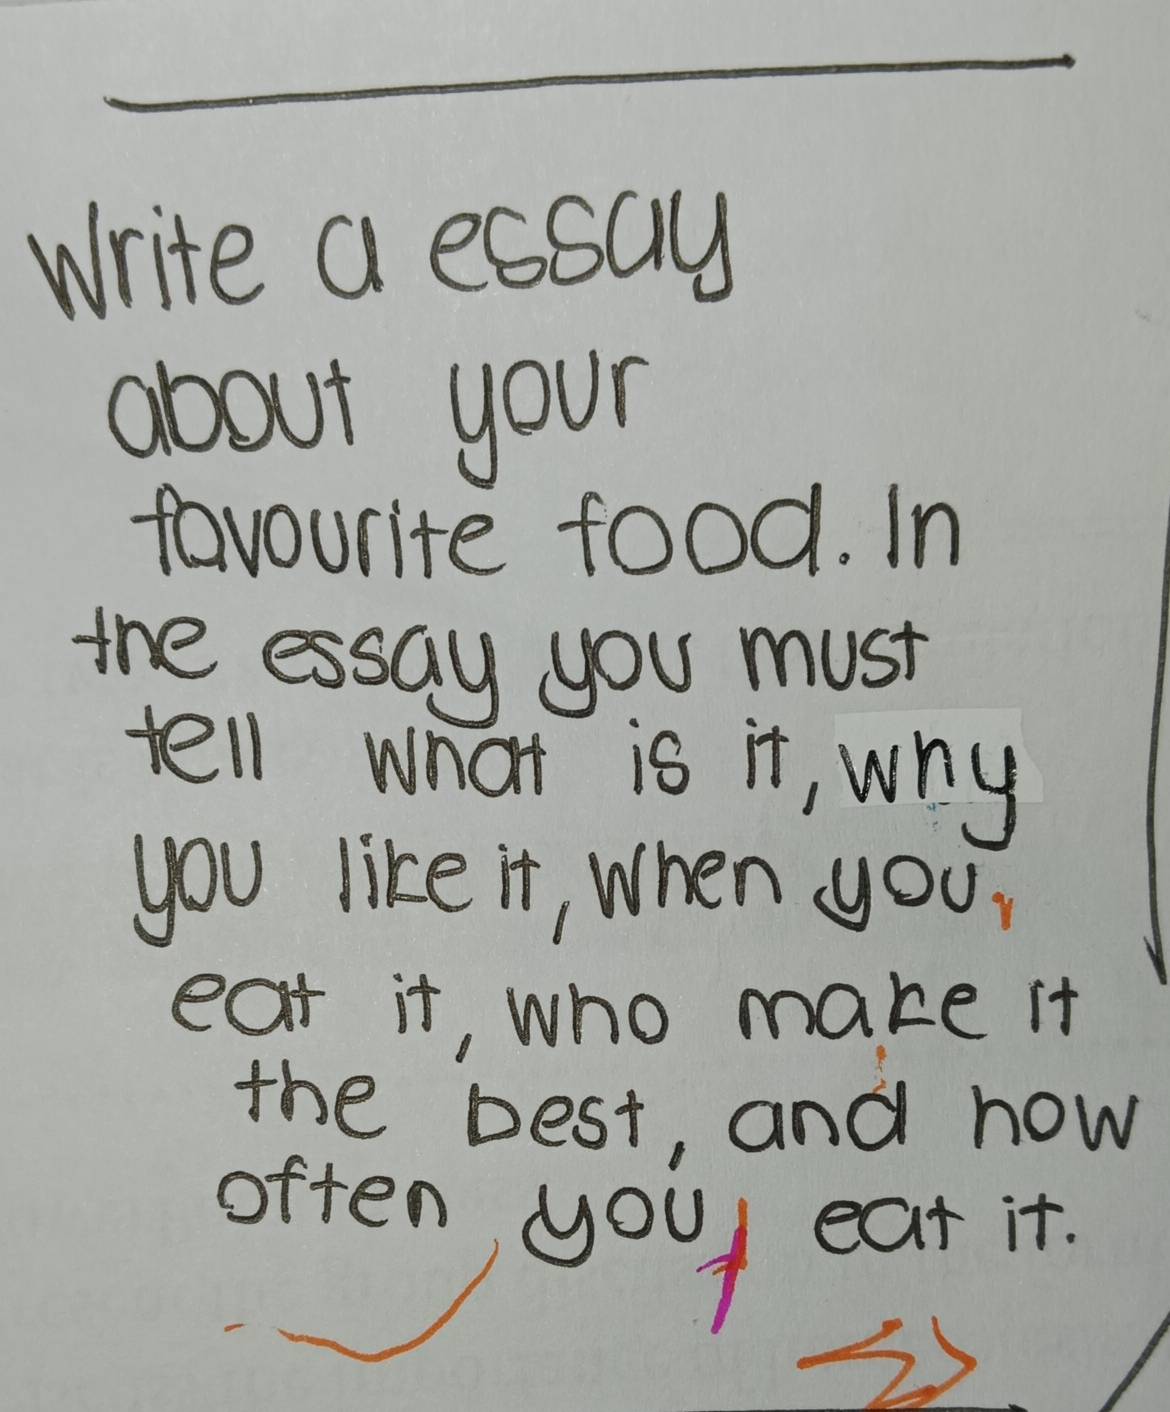 Write a essay
about your
favourite food. In
the essay you must
tell what is it, why
you like it, when you
eat it, who make it
the best, and how
often you eat it.